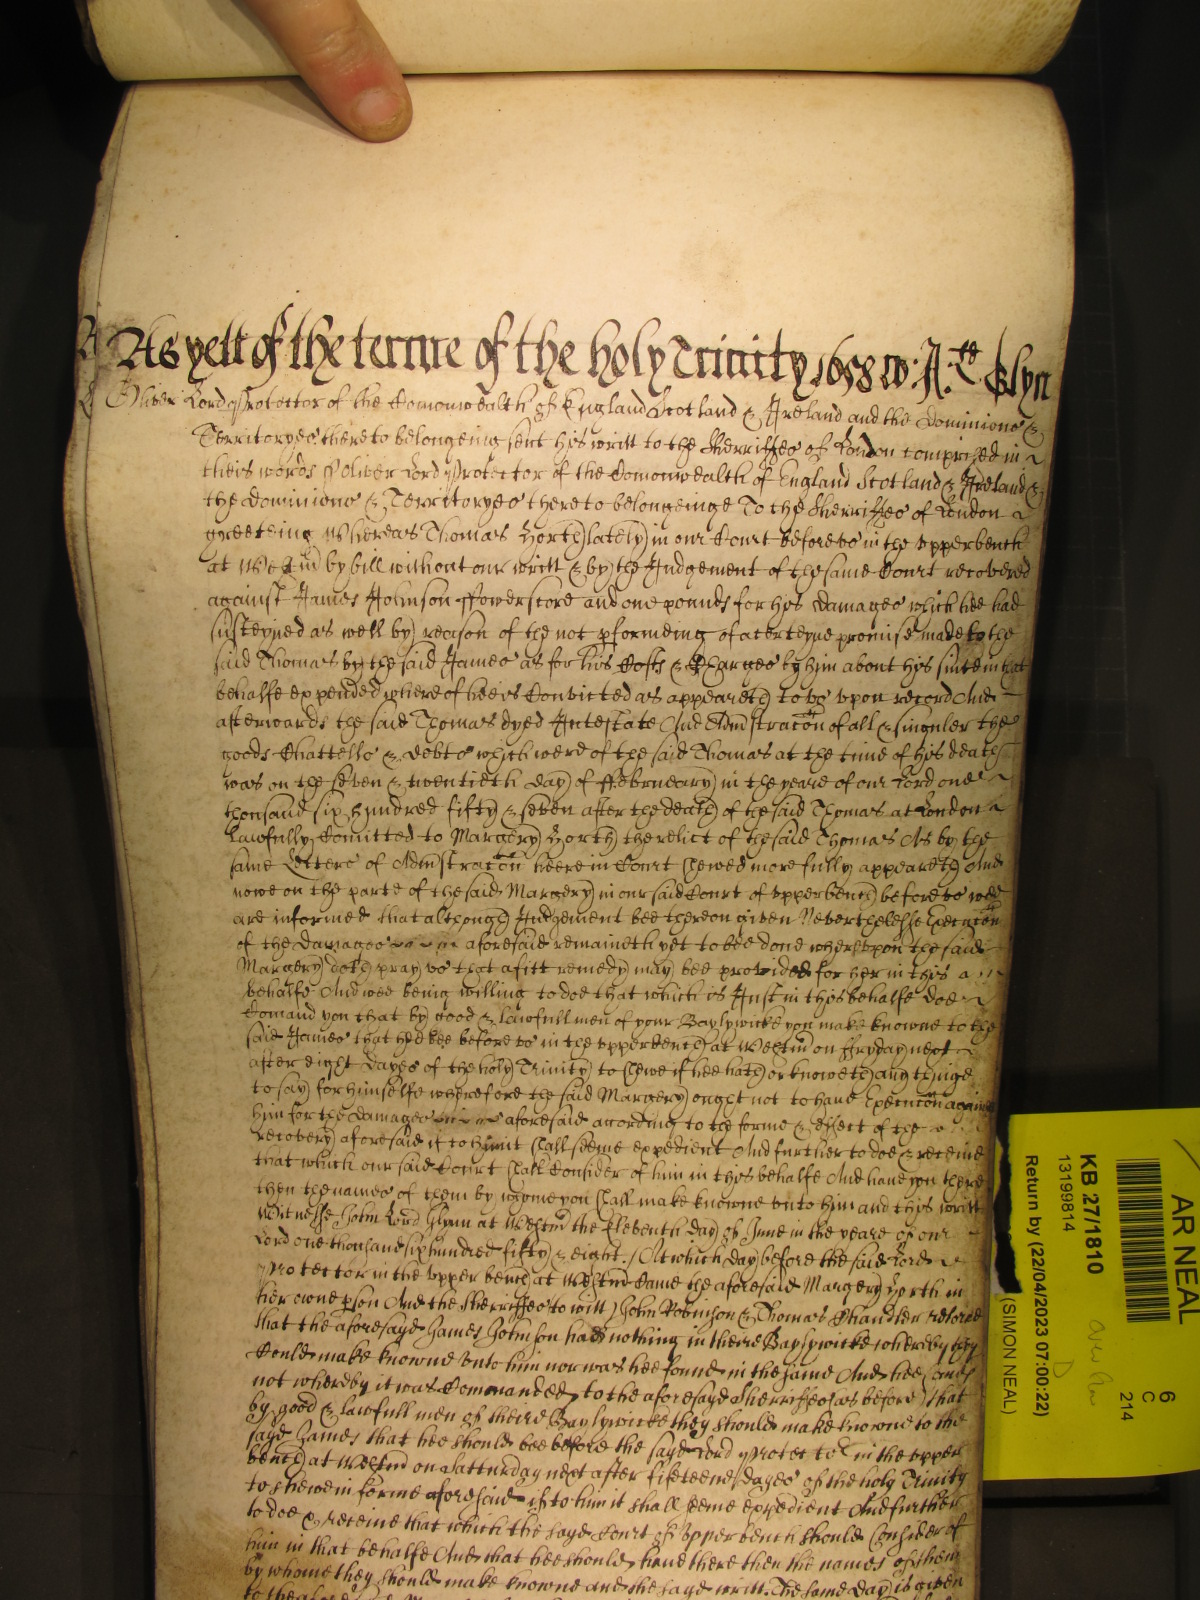 As yett of the terme of the holy Trinity 1658 W: A:tt Glyn
Oliver Lord Protector of the Comonwealth of England Scotland & Ireland and the Dominions &
Territoryes thereto belongeing sent his writt to the Sherriffes of London comprized in
theis words Oliver Lord Protector of the Comonwealth of England Scotland & Ireland &
the Dominions & Territoryes thereto belongeinge To the Sherriffes of London
greeteing Whereas Thomas North lately in our Court before us in the upperbench
at Westm by bill without our writt & by the Judgement of the same Court recovered
against James Johnson ffowerscore and one pounds for his damages which hee had
susteyned as well by reason of the not pformeing of a certeyne promise made to the
said Thomas by the said James as for his Costs & Charges by him about his suite in that
behalfe expended whereof hee is Convicted as appeareth to us upon record And
afterwards the said Thomas dyed Intestate And Admstracon of all & singuler the
goods Chattells & debts which were of the said Thomas at the time of his death
was on the seven & twentieth day of ffebrueary in the yeare of our Lord one
thousand six hundred fifty & seven after the death of the said Thomas at London
Lawfully Comitted to Margery North the relict of the said Thomas As by the
same Letters of Admstracon heere in Court shewed more fully appeareth And
nowe on the parte of the said Margery in our said Court of upperbench before us wee
are informed that although Judgement bee thereon given Neverthelesse Execucon
of the damages aforesaid remaineth yet to bee done whereupon the said
Margery doth pray us that a fitt remedy may bee provided for her in this
behalfe And wee being willing to doe that which is Just in this behalfe doe
Comand you that by good & lawfull men of your Baylywicke you make knowne to the
said James that hee bee before us in the upperbench at Westm on ffryday next
after eight dayes of the holy Trinity to shewe if hee hath or knoweth any thinge
to say for himselfe wherefore the said Margery ought not to have Execucon against
him for the damages aforesaid according to the forme & effect of the
recovery aforesaid if to him it shall seeme expedient And further to doe & receive
that which our said Court shall Consider of him in this behalfe And have you there
then the names of them by whome you shall make knowne unto him and this writt
Witnesse John Lord Glynn at Westm the Eleventh day of June in the yeare of our
Lord one thousand six hundred fifty & eight / At which day before the said Lord
Protector in the upper bench at Westm Came the aforesaid Margery North in
her owne pson And the Sherriffes to witt John Robinson & Thomas Chandler retorne
that the aforesayd James Johnson had nothing in theire Baylywicke whereby they
Could make knowne unto him nor was hee found in the same And hee Comes
not whereby it was Commanded to the aforesayd Sherriffes as before that
by good & lawfull men of theire Baylywicke they should make knowne to the
sayd James that hee should bee before the sayd Lord Protector in the upper
bench at Westm on Satturday next after fifteene dayes of the holy Trinity
to shewe in forme aforesaid if to him it shall seeme expedient And further
to doe & receive that which the sayd Court of Upper bench should Consider of
him in that behalfe And that hee should have there then the names of them
by whome they should make knowne and the sayd writt. The same day is given
AR NEAL
6
C
214
KB 27/1810
13199814
Return by (22/04/2023 07:00:22)
(SIMON NEAL)